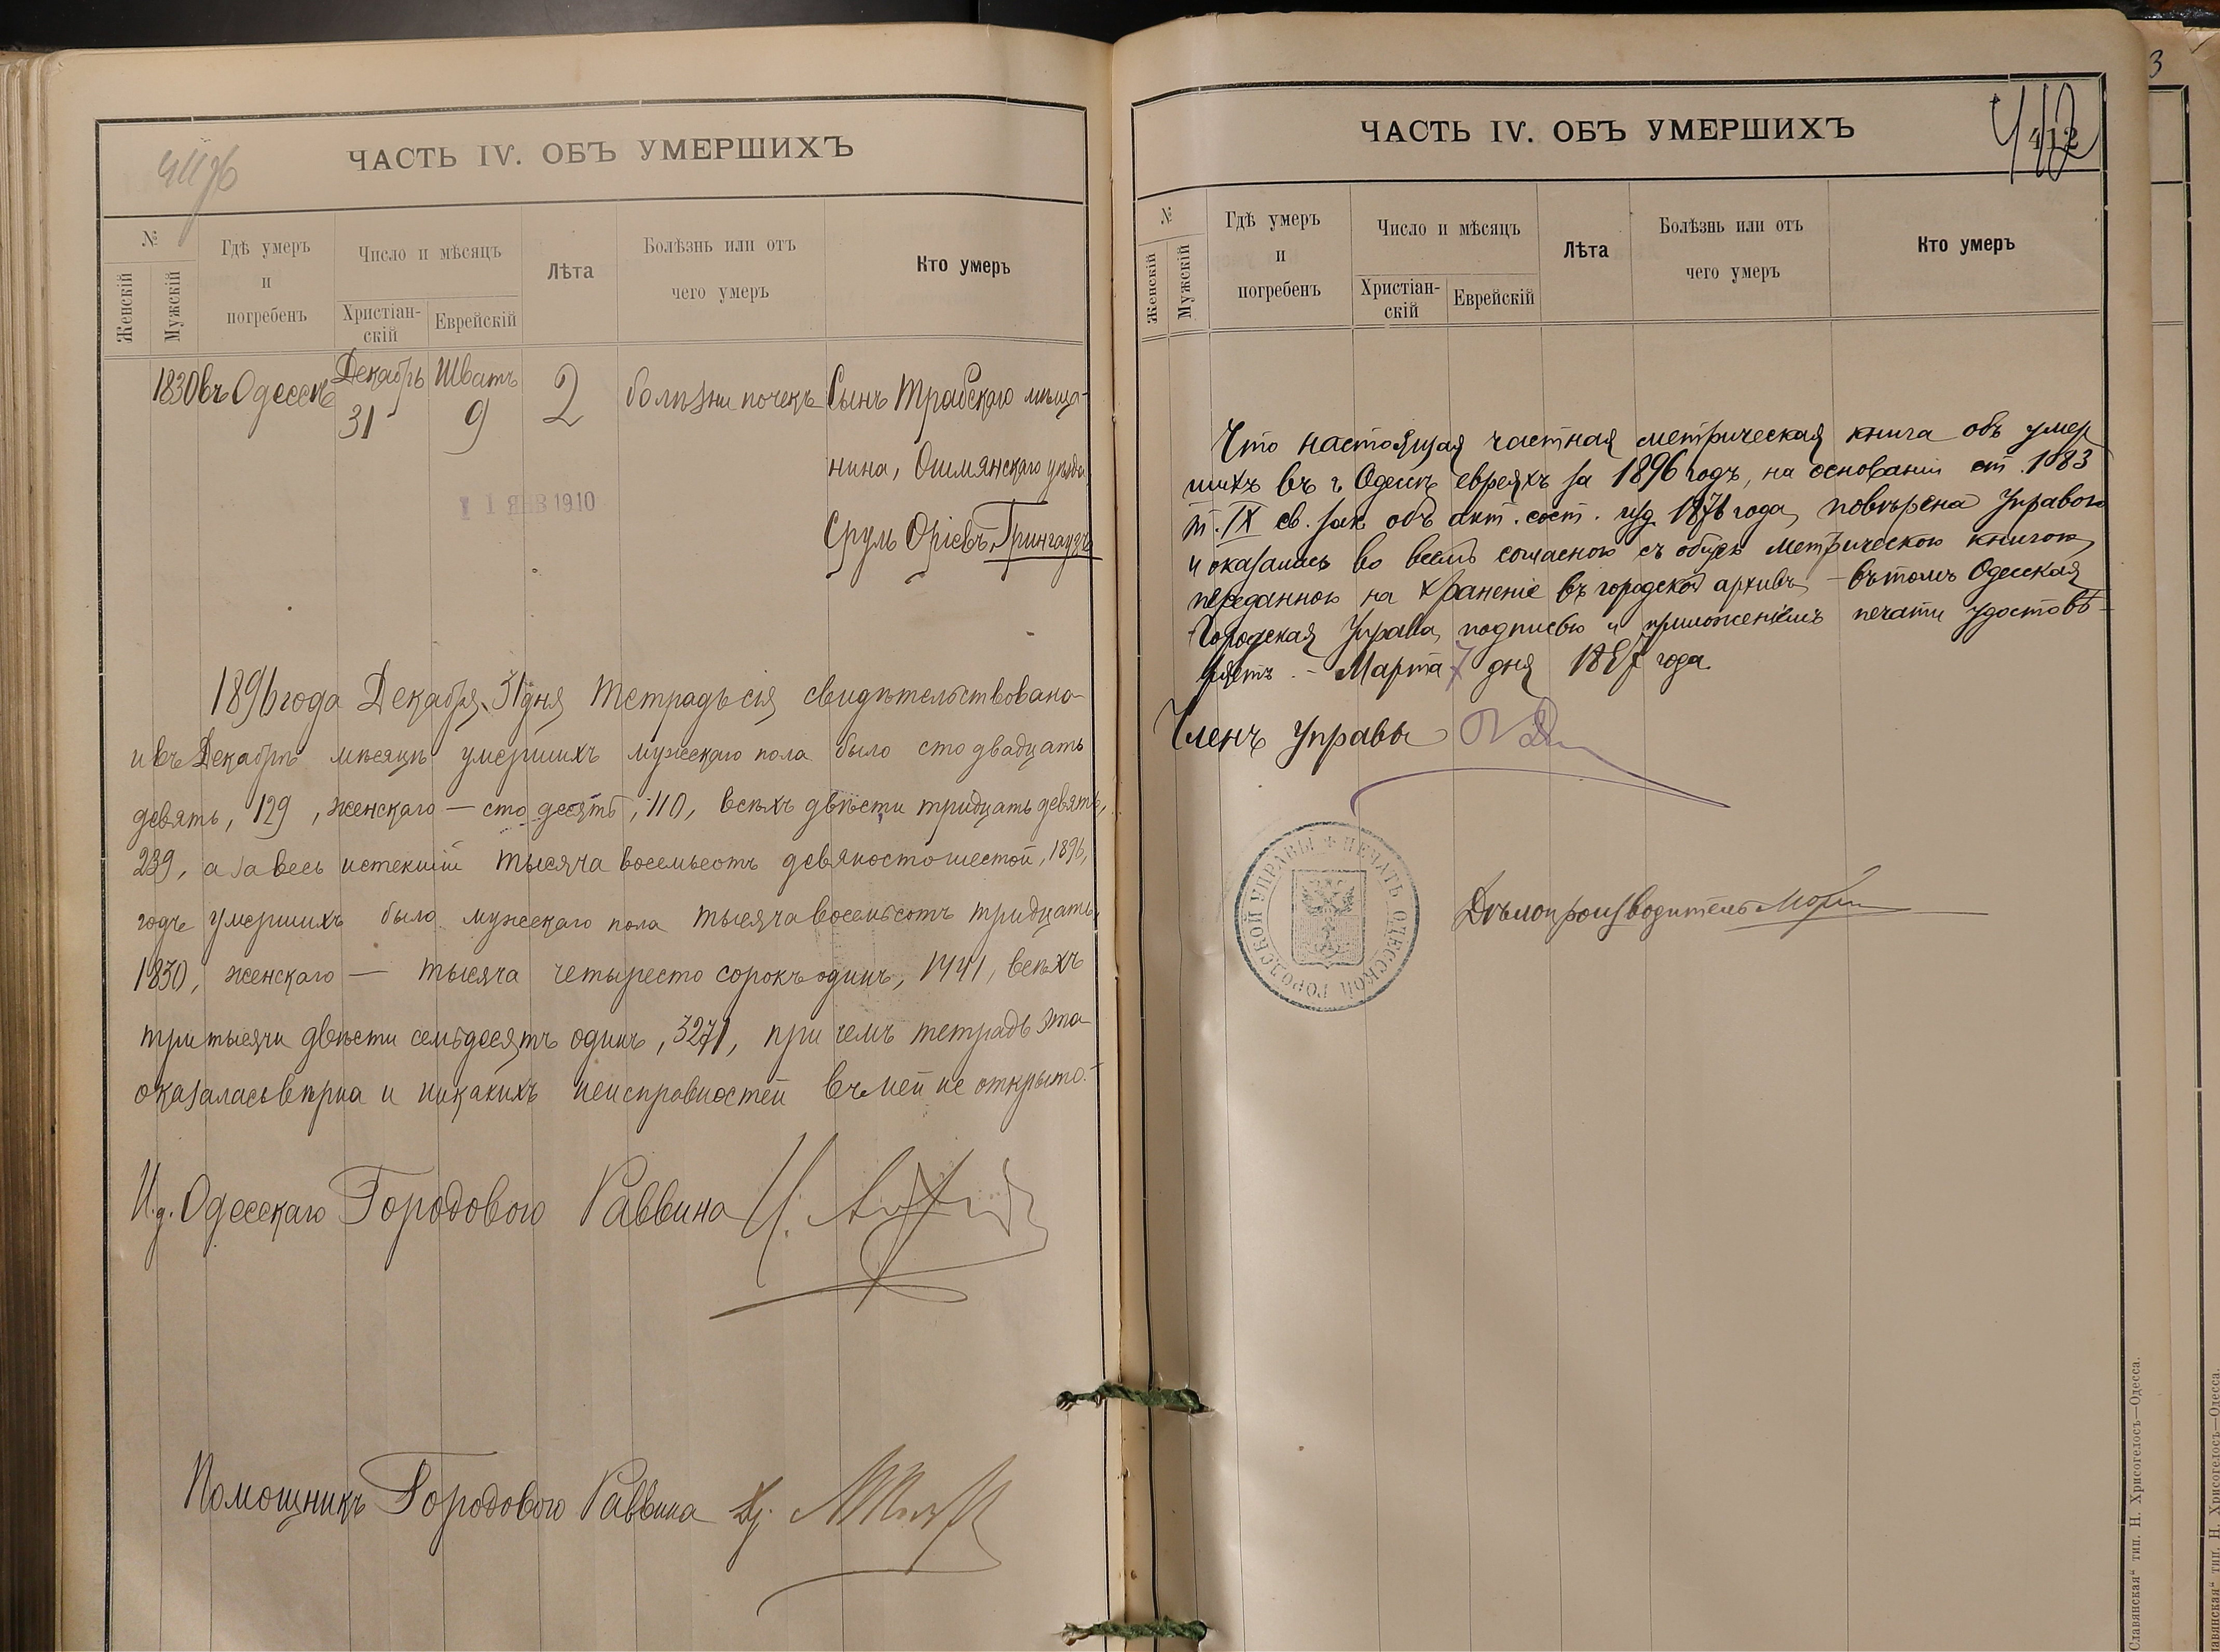 ЧАСТЬ IV. ОБЪ УМЕРШИХЪ
№
Женскій
Мужскій
Гдѣ умеръ
и
погребенъ
Число и мѣсяцъ
Христіан-
скій
Еврейскій
Лѣта
Болѣзнь или отъ
чего умеръ
Кто умеръ
1830 въ Одессѣ Декабрь 31 Шватъ 9 2 болѣзни почекъ Сынъ Трабскаго мѣща-
нина, Ошмянскаго уѣзда
Сруль Оріевъ Грингаузъ
11 ЯНВ 1910
1896 года Декабря 31 дня Тетрадь сія свидѣтельствована
и въ Декабрѣ мѣсяцѣ умершихъ мужскаго пола было сто двадцать
девять, 129, женскаго — сто десять, 110, всѣхъ двѣсти тридцать девять,
239, а за весь истекшій тысяча восемьсотъ девяносто шестой, 1896,
годъ умершихъ было мужскаго пола тысяча восемьсотъ тридцать,
1830, женскаго — тысяча четыресто сорокъ одинъ, 1441, всѣхъ
три тысячи двѣсти семьдесятъ одинъ, 3271, при чемъ тетрадь эта
оказалась вѣрна и никакихъ неисправностей въ ней не открыто.-
И.д. Одесскаго Городового Раввина
Помощникъ Городового Раввина
ЧАСТЬ IV. ОБЪ УМЕРШИХЪ
412
№
Женскій
Мужскій
Гдѣ умеръ
и
погребенъ
Число и мѣсяцъ
Христіан-
скій
Еврейскій
Лѣта
Болѣзнь или отъ
чего умеръ
Кто умеръ
Что настоящая частная метрическая книга объ умер
шихъ въ г. Одессѣ евреяхъ за 1896 годъ, на основаніи ст. 1083
т. IX св. зак. объ акт. сост. изд. 1876 года, повѣрена Управою
и оказалась во всемъ согласною съ общею метрическою книгою,
переданною на храненіе въ городской архивъ, – въ томъ Одесская
Городская Управа, подписью и приложеніемъ печати удостовѣ-
ряетъ. – Марта 7 дня 1897 года.
Членъ Управы
ПЕЧАТЬ ОДЕССКОЙ ГОРОДСКОЙ УПРАВЫ
Дѣлопроизводитель
Славянская“ тип. Н. Хрисогелосъ—Одесса.
3
Славянская“ тип. Н. Хрисогелосъ—Одесса.